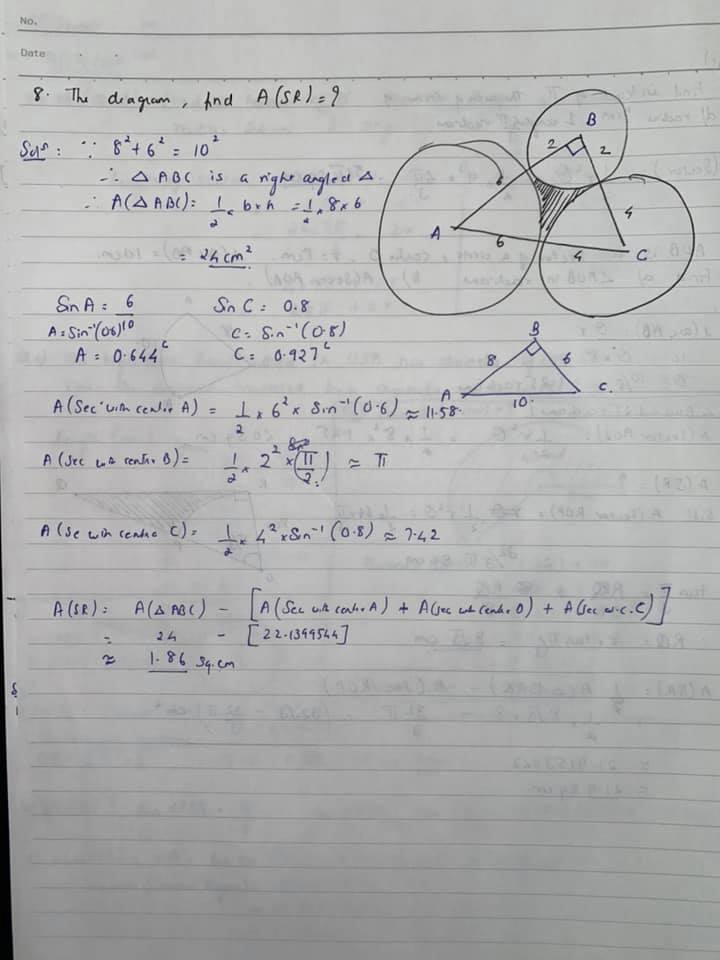 No.
Date
8. The diagram, find A(SR) = ?
Solⁿ: ∵ 8² + 6² = 10²
∴ △ABC is a right angled △
∴ A(△ABC) = 1/2 × b × h = 1/2 × 8 × 6
= 24 cm²
B
2 2
6
4
A
6
4
C
Sin A = 6/10 Sin C = 0.8
A = Sin⁻¹(0.6) C = Sin⁻¹(0.8)
A = 0.644ᶜ C = 0.927ᶜ
B
8 6
A C.
10.
A(Sec with centre A) = 1/2 × 6² × Sin⁻¹(0.6) ≈ 11.58.
A(Sec with centre B) = 1/2 × 2² × (π/2) ≈ π
A(Se with centre C) = 1/2 × 4² × Sin⁻¹(0.8) ≈ 7.42
A(SR) = A(△ABC) - [A(Sec with centre A) + A(sec with centre O) + A(Sec w.c.C)]
= 24 - [22.1399544]
≈ 1.86 Sq.cm